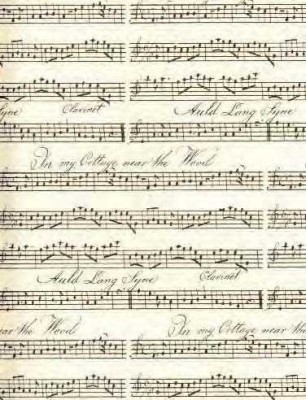 yne Clarinet Auld Lang Syne
In my Cottage near the Wood
Auld Lang Syne Clarinet
ear the Wood In my Cottage near the